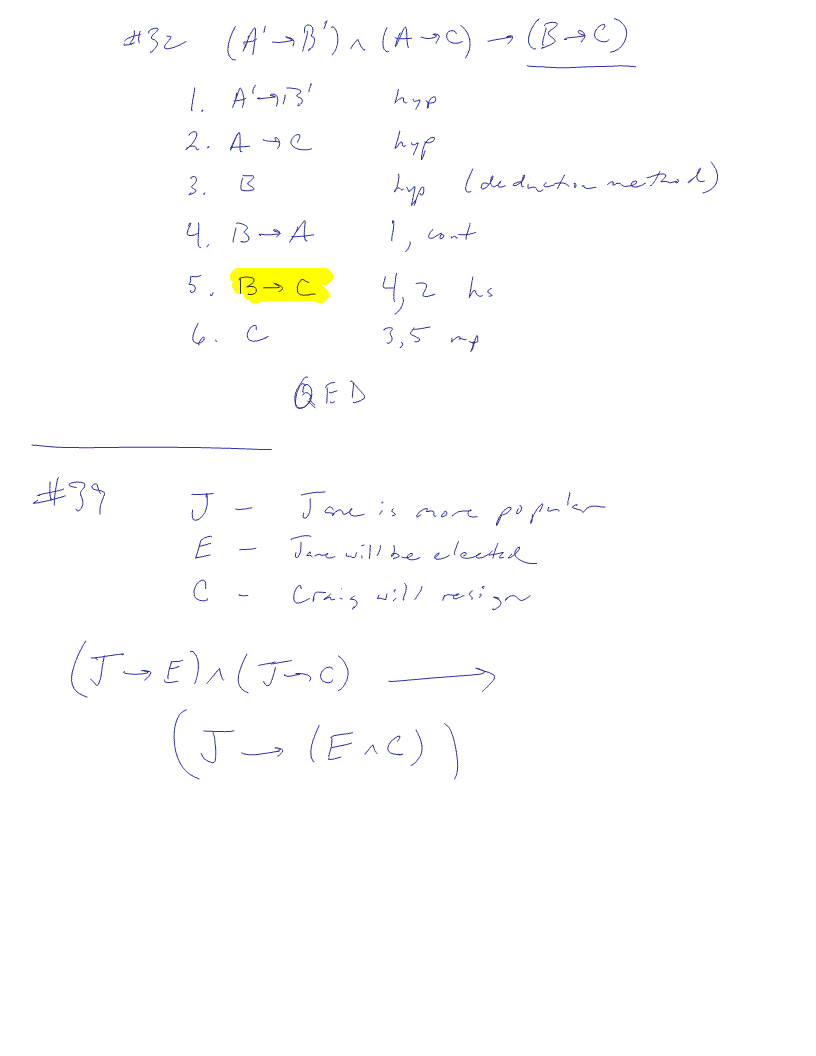 #32 (A'→B') ∧ (A→C) → (B→C)
1. A'→B' hyp
2. A→C hyp
3. B hyp (deduction method)
4. B→A 1, cont
5. B→C 4,2 hs
6. C 3,5 mp
QED
#39 J – Jane is more popular
E – Jane will be elected
C – Craig will resign
(J→E)∧(J→C) ⟶
(J→(E∧C))